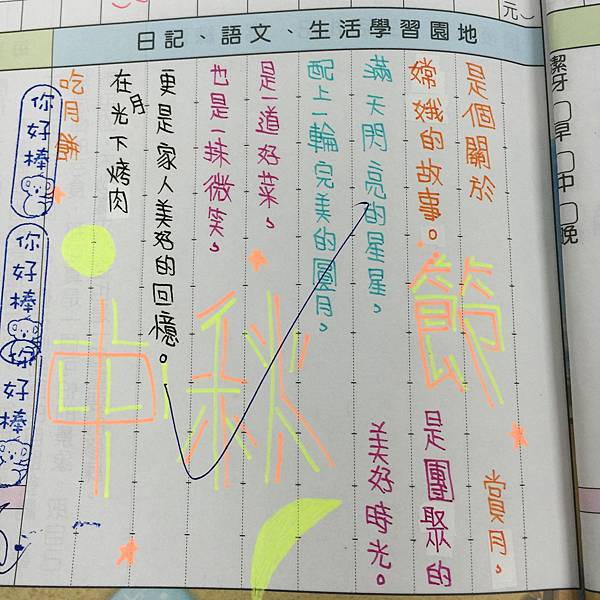 元
潔牙 □早 □中 □晚
日記、語文、生活學習園地
是個關於
嫦娥的故事。
滿天閃亮的星星,
配上一輪完美的圓月,
是一道好菜,
也是一抹微笑,
更是家人美好的回憶。
在月光下烤肉
吃月餅
賞月。
是團聚的
美好時光。
中秋節
你好棒
你好棒
你好棒